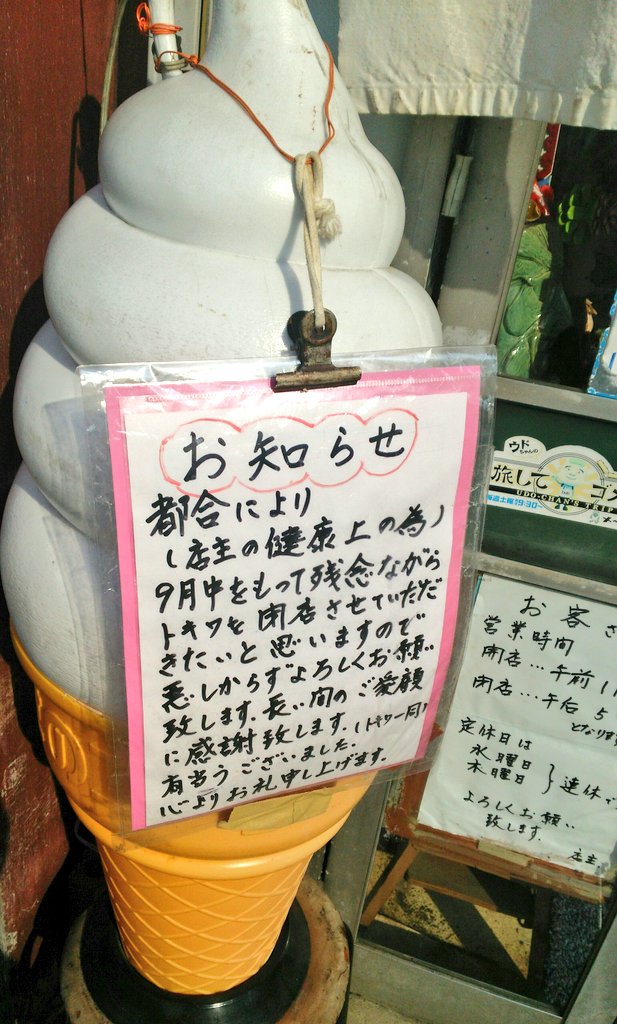 お知らせ
都合により
(店主の健康上の為)
9月中をもって残念ながら
トキワを閉店させていただだ
きたいと思いますので
悪しからずよろしくお願い
致します。長い間のご愛顧
に感謝致します。(トキワ一同)
有難うございました。
心よりお礼申し上げます。
ウド
ちゃんの
旅して
ゴ
UDO-CHAN'S TRIP
毎週土曜 9:30~
お客さ
営業時間
閉店…午前 1
閉店…午后 5
となります
定休日は
水曜日
木曜日 } 連休で
よろしくお願い
致します。
店主